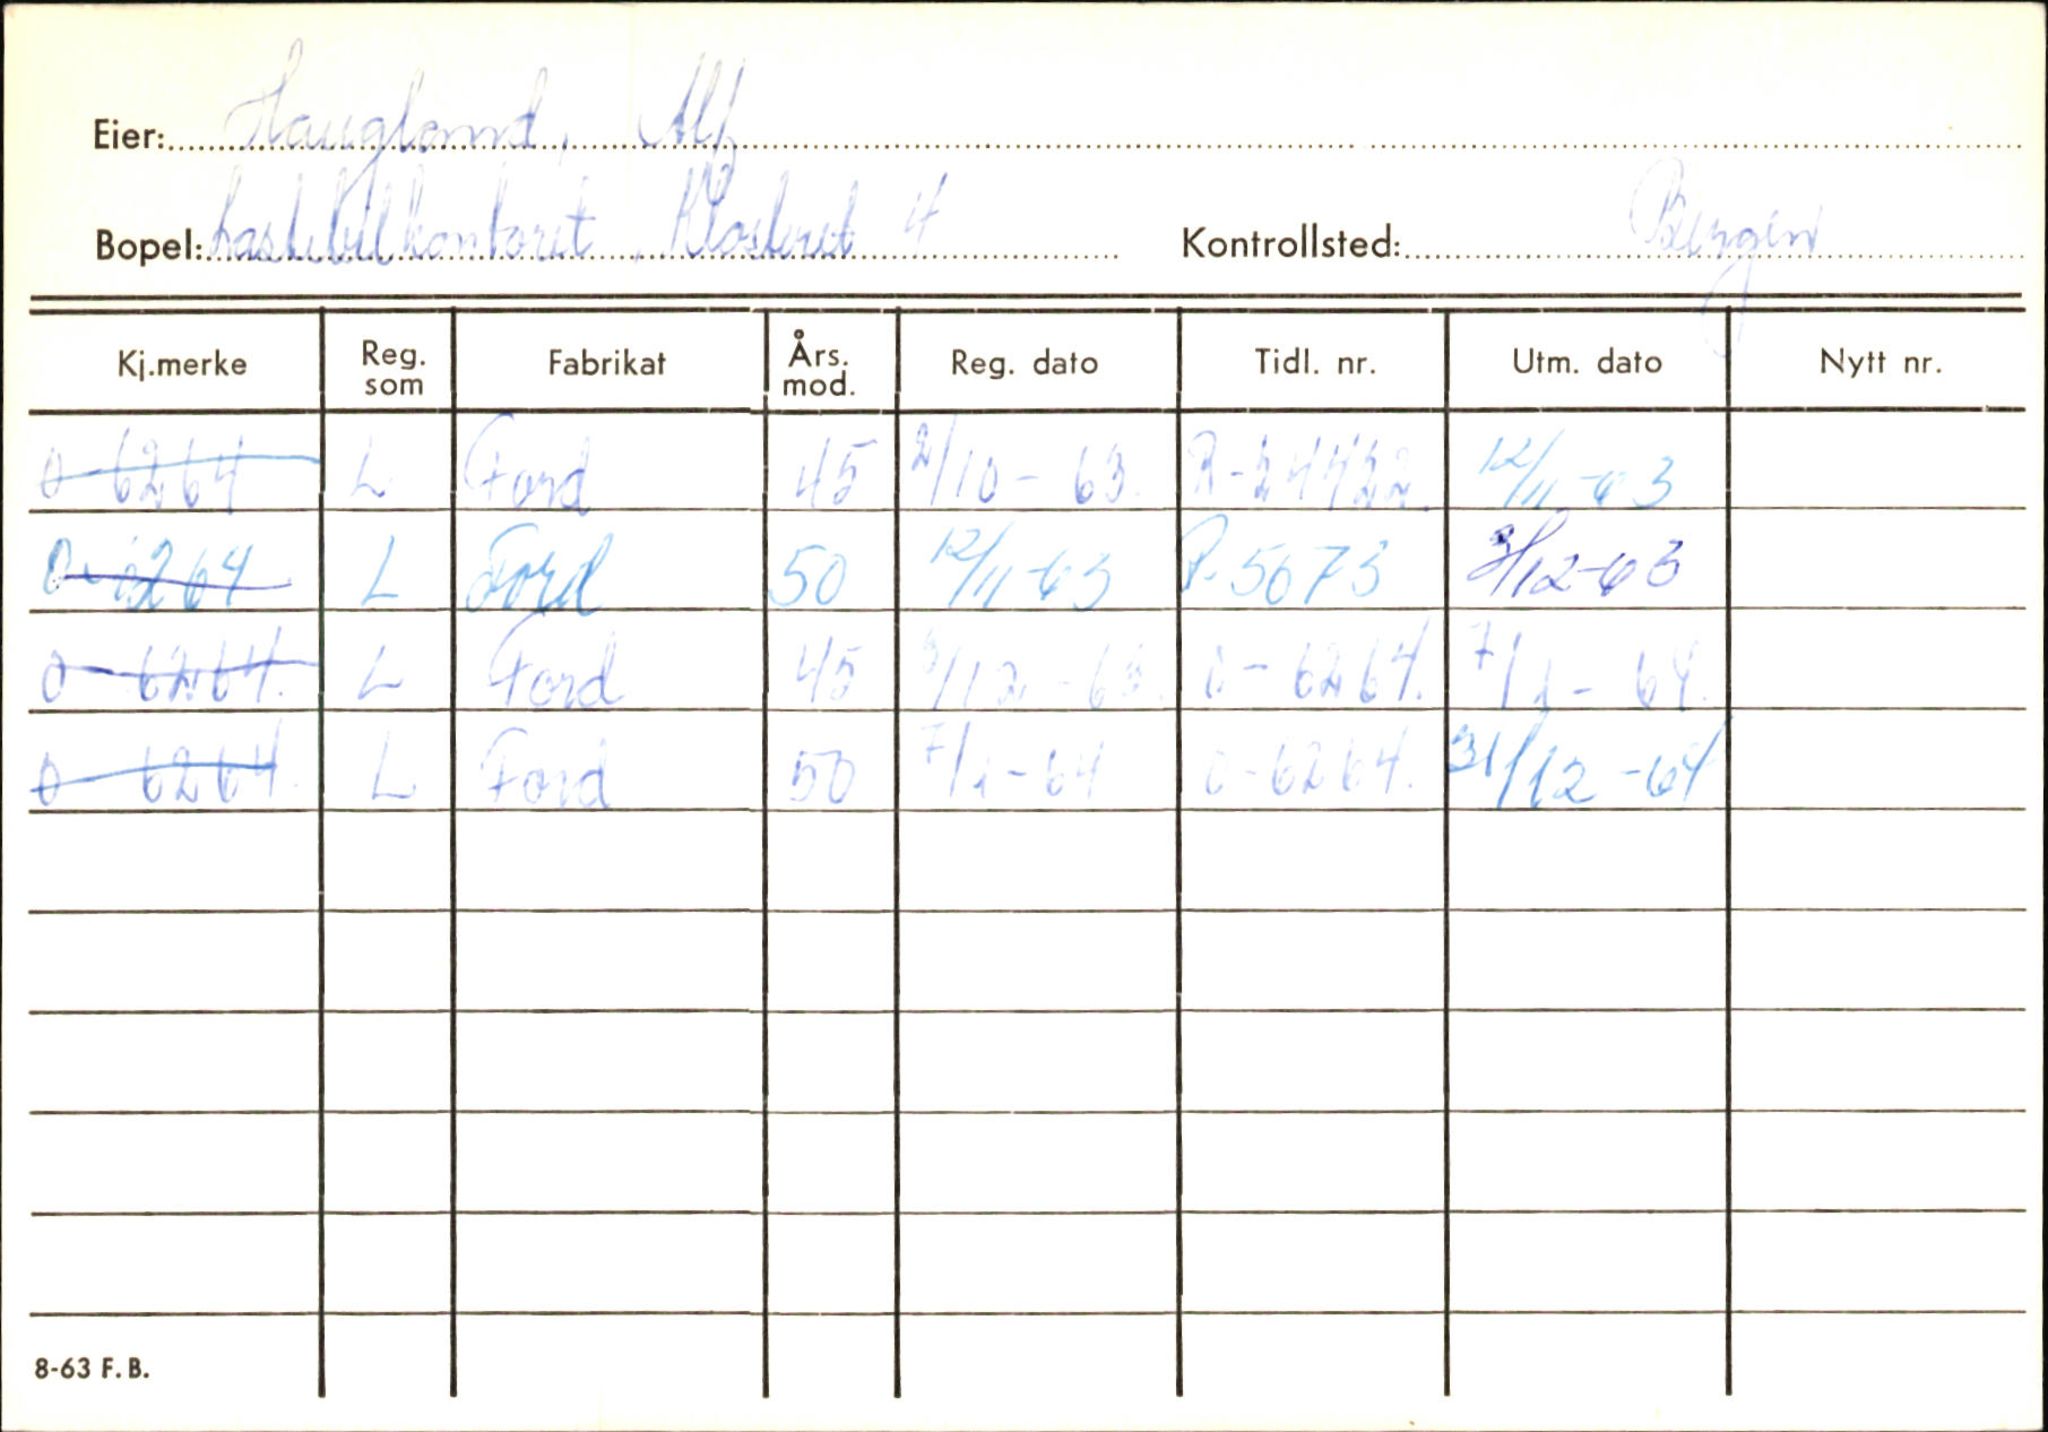 Eier: Haugland, Alf
Bopel: Lastebilkontoret, Klosteret 4 Kontrollsted: Bergen
Kj.merke Reg. som Fabrikat Års. mod. Reg. dato Tidl. nr. Utm. dato Nytt nr.
O-6264 L Ford 45 2/10-63. R-24422. 12/11-63
O-6264 L Ford 50 12/11-63 R-5673 3/12-63
O-6264. L Ford 45 3/12-63. O-6264. 7/1-64.
O-6264. L Ford 50 7/1-64 O-6264. 31/12-64
8-63 F.B.